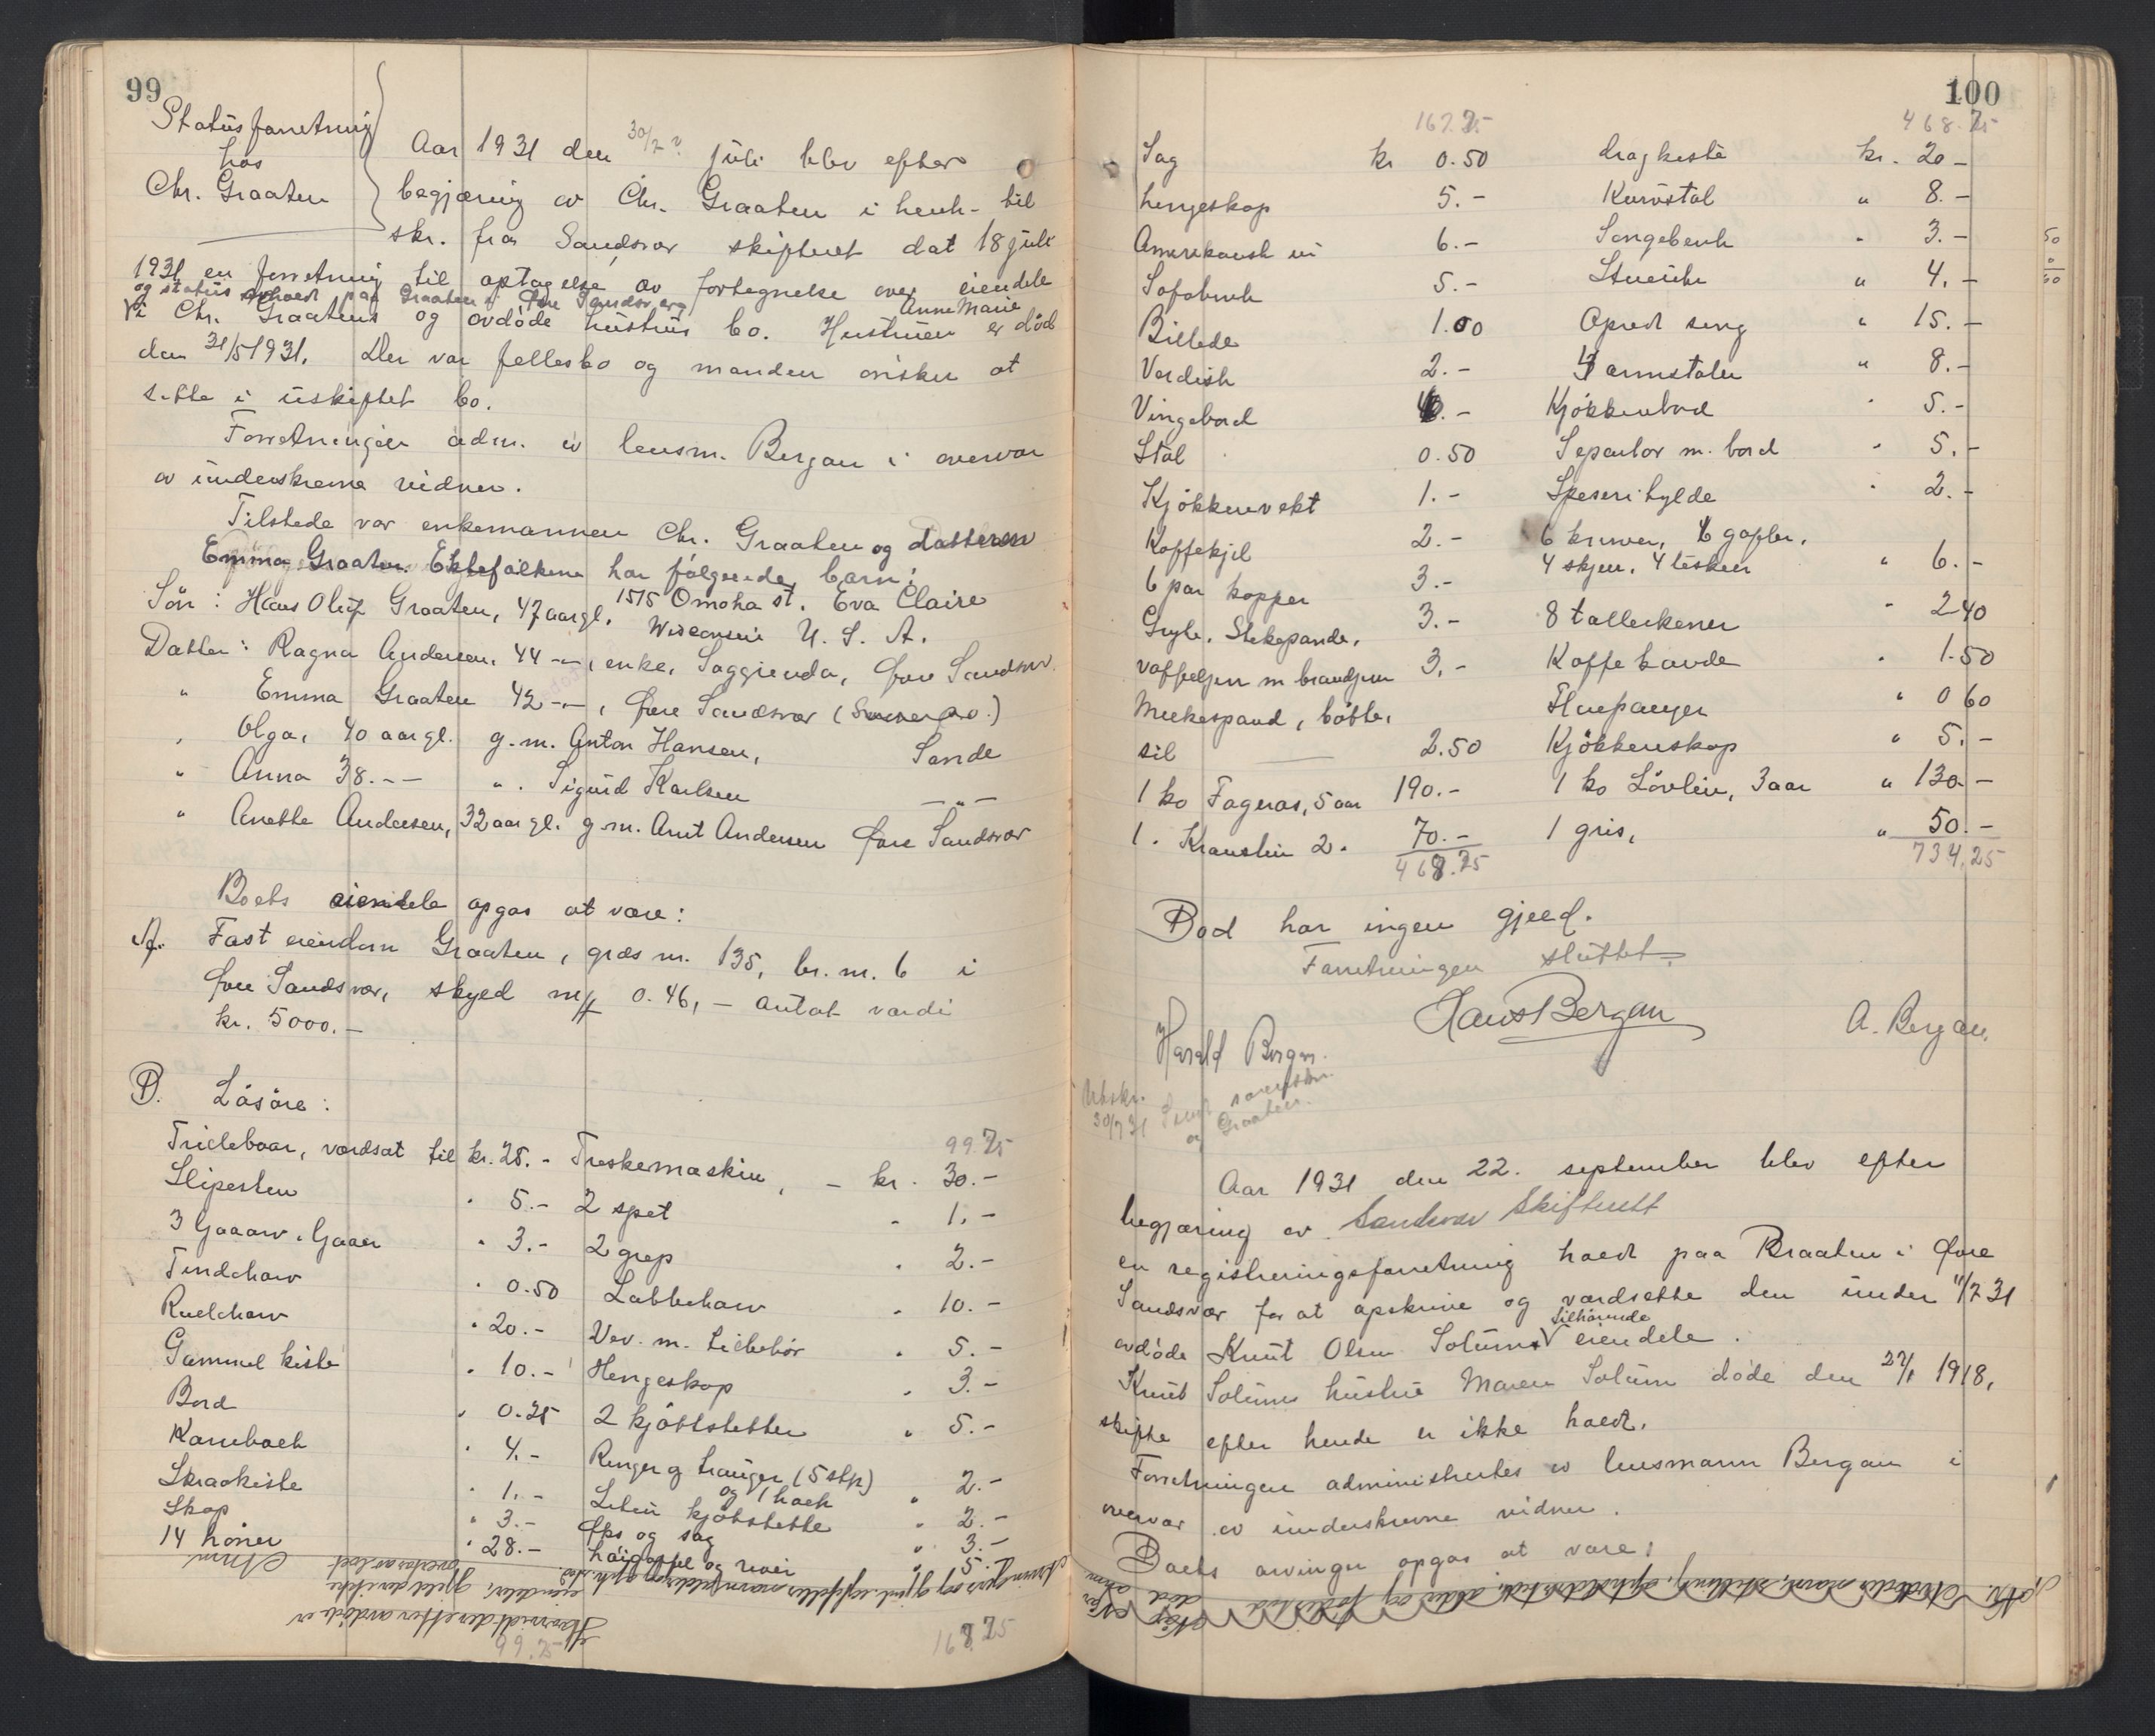 99
Statusforretning
hos
Chr. Graaten
Aar 1931 den 30/7 ? juli blev efter
begjæring av Chr. Graaten i henh- til
skr. fra Sandsvær skifteret dat 18 juli
1931 en forretning til optagelse av fortegnelse over eiendele
og status avholdt paa Graaten i Øvre Sandsvær
i Chr. Graatens og avdøde hustrus bo. Hustruen Anne Marie er död
den 31/5 1931. Der var fellesbo og manden önsker at
sitte i uskiftet bo.
Forretningen adm. av lensm. Bergan i overvær
av underskrevne vidner.
Tilstede var enkemannen Chr. Graaten og datteren
Emma Graaten. Ektefolkene har følgende barn:
Sön: Hans Oluf Graaten, 47 aar gl. 1515 Omoha st. Eva Claire
Wisconsin U. S. A.
Datter: Ragna Andersen, 44 -"-, enke, Saggrenda, Øvre Sandsvær
" Emma Graaten 42 -"-, Øvre Sandsvær
" Olga, 40 aar gl. g. m. Anton Hansen, Sande
" Anna 38.-- ". Sigurd Karlsen -"-
" Anette Andersen, 32 aar gl. g. m. Arnt Andersen Øvre Sandsvær
Boets eiendele opgas at være:
A. Fast eiendom Graaten, grds nr. 135, br. nr. 6 i
Øvre Sandsvær, skyld mrk 0.46,- antat værdi
kr. 5000.-
B. Lösöre:
99.25
Trillebaar, værdsat til kr. 25.- Treskemaskin, - kr. 30.-
Slipesten " 5.- 2 spet " 1.-
3 " 3.- 2 grep " 2.-
Tindeharv " 0.50 Labbeharv " 10.-
Rulleharv " 20.- Vev. m. tilbehör " 5.-
Gammel kiste " 10.- Hengeskap " 3.-
Bord " 0.25 2 kjöttstetter " 5.-
4.- Ringer og trauger (5 stk) " 2.-
og 1
Skraakiste " 1.- Liten kjötstette " 2.-
Skap " 3.- Öks og sag " 3.-
14 höner " 28.- höigaffel og river " 5.-
99.25
167.25
100
167.25
468.25
Sag kr 0.50 dragkiste kr. 20-
Hengeskap 5.- Kurvstol " 8.-
Amerikansk ur 6.- Sengebenk " 3.-
Sofabenk 5.- Stueur " 4.-
Billede 1.00 Opredt seng " 15.-
Vordisk 2.- 4 armstoler " 8.-
Vingebord .- Kjökkenbord " 5.-
Stol 0.50 Separator m. bord " 5.-
Kjökkenvekt 1.- Speserihylde " 2.-
Kaffekjel 2.- 6 kniver, 6 gafler,
6 par kopper 3.- 4 skjeer, 4 teskeer " 6.-
Gryte. Stekepande. 3.- 8 tallerkener " 2 40
vaffeljern m brandjern 3.- Kaffe kande " 1.50
Melkespand, bötte, Stuepanger " 0 60
sil 2.50 Kjökkenskap " 5.-
1 ko Fageros, 5 aar 190.- 1 ko Lövlin, 3 aar " 130.-
1 " Kranslin 2 " 70.- 1 gris, " 50.-
468.25
734.25
Boet har ingen gjeld.
Forretningen sluttet.
Hans Bergan
Harald Bergan.
A. Bergan.
Utskr.
30/7 31 Sendt sorenskr.
og Graaten.
Aar 1931 den 22. september blev efter
begjæring av Sandsvær Skifterett
en registreringsforretning holdt paa Braaten i Øvre
Sandsvær for at opskrive og værdsette den under 11/7 31
avdöde Knut Olsen Solums tilhörende eiendele.
Knut Solums hustru Maren Solum döde den 27/1 1918,
skifte efter hende er ikke holdt.
Forretningen administrertes av lensmann Bergan i
overvær av underskrevne vidner.
Boets arvinger opgas at være: